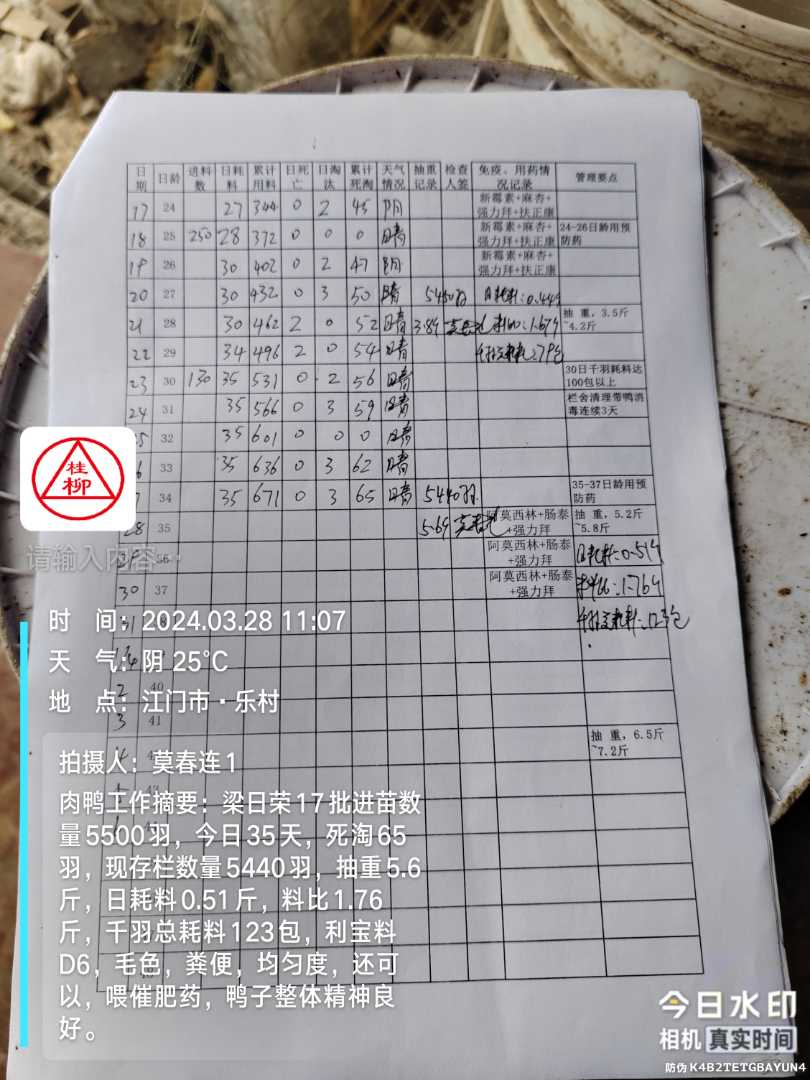 日期 日龄 进料数 日耗料 累计用料 日死亡 日淘汰 累计死淘 天气情况 抽重记录 检查人签 免疫、用药情况记录 管理要点
17 24 27 344 0 2 45 阴 新霉素+麻杏+强力拜+扶正康
18 25 250 28 372 0 0 0 晴 新霉素+麻杏+强力拜+扶正康 24-26日龄用预防药
19 26 30 402 0 2 47 阴 新霉素+麻杏+强力拜+扶正康
20 27 30 432 0 3 50 晴 5450羽 日耗料:0.44斤
21 28 30 462 2 0 52 晴 3.8斤 料比:1.67斤 抽重,3.5斤~4.2斤
22 29 34 496 2 0 54 晴
23 30 130 35 531 0 2 56 晴 30日千羽耗料达100包以上
24 31 35 566 0 3 59 晴 栏舍清理带鸭消毒连续3天
32 35 601 0 0 0 晴
33 35 636 0 3 62 晴
34 35 671 0 3 65 晴 5440羽 35-37日龄用预防药
28 35 5.6斤 阿莫西林+肠泰+强力拜 抽重,5.2斤~5.8斤
阿莫西林+肠泰+强力拜 日耗料:0.51斤
30 37 阿莫西林+肠泰+强力拜 料比:1.76斤
2 40
3 41
抽重,6.5斤~7.2斤
桂柳
请输入内容…
时间:2024.03.28 11:07
天气:阴 25℃
地点:江门市·乐村
拍摄人:莫春连1
肉鸭工作摘要:梁日荣17批进苗数
量5500羽,今日35天,死淘65
羽,现存栏数量5440羽,抽重5.6
斤,日耗料0.51斤,料比1.76
斤,千羽总耗料123包,利宝料
D6,毛色,粪便,均匀度,还可
以,喂催肥药,鸭子整体精神良
好。
今日水印
相机 真实时间
防伪 K4B2TETGBAYUN4